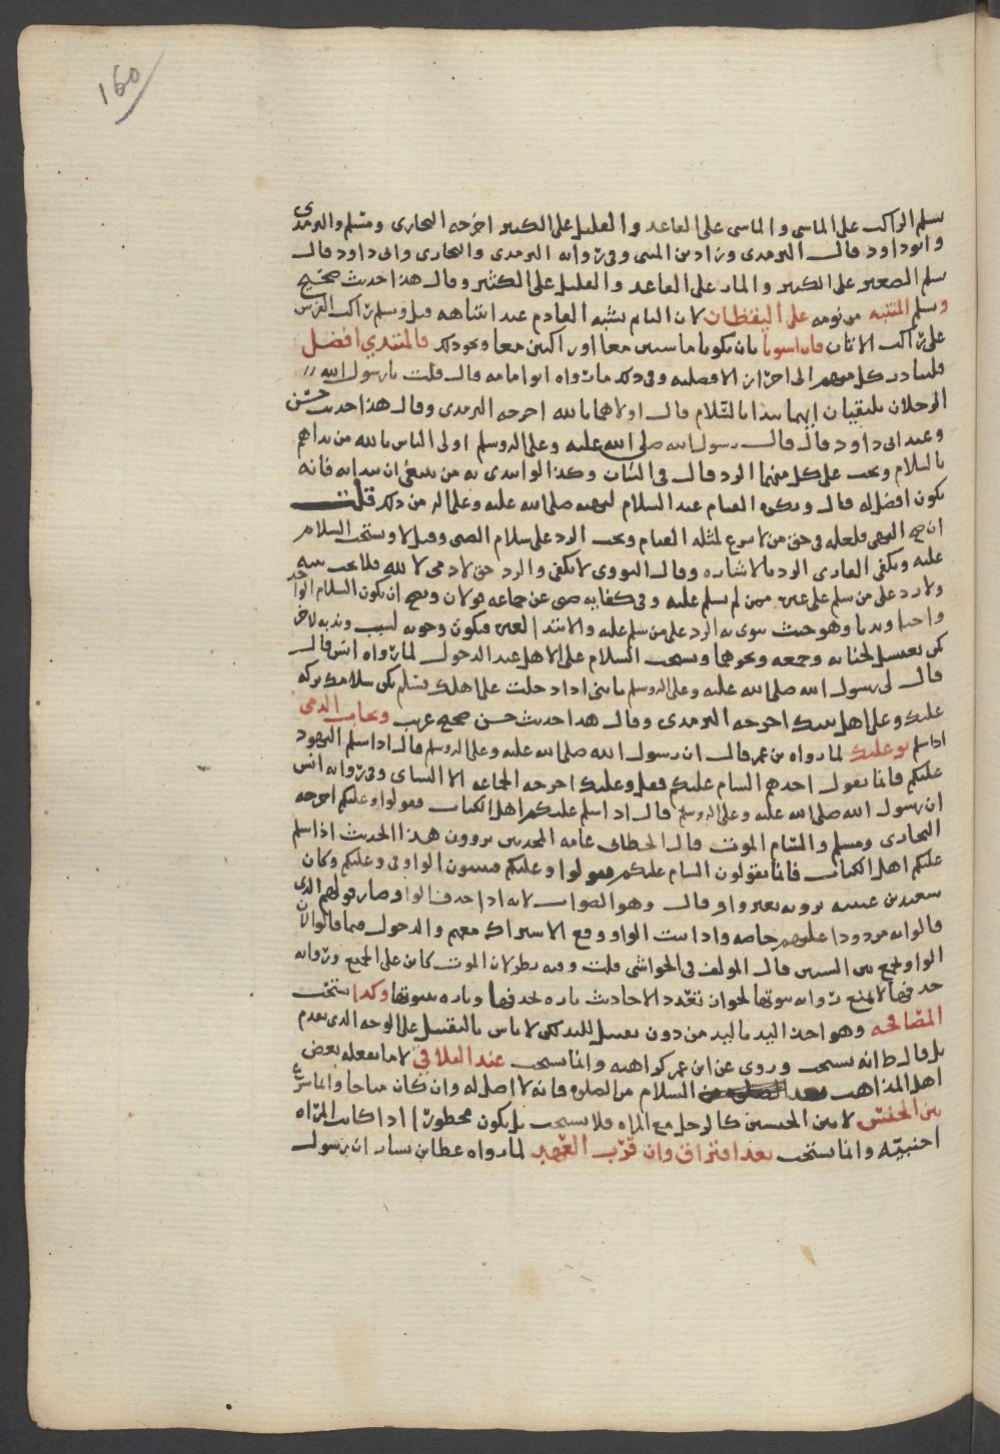 160
يسلم الراكب على الماشي والماشي على القاعد والقليل على الكثير اخرجه البخاري ومسلم والترمذي
وابو داود قال الترمذي وزاد بن المثنى وفي رواية الترمذي والبخاري وابي داود قال
يسلم الصغير على الكبير والمار على القاعد والقليل على الكثير وقال هذا حديث صحيح
ويسلم المنتبه من نومه على اليقظان لان النايم يشبه القادم عند انتباهه قيل ويسلم راكب الفرس
على راكب الاتان فان استويا بان يكونا ماشيين معا او راكبين معا ونحو ذلك فالمبتدي افضل
فليبادر كل منهم الى احراز الافضلية وفي ذلك ما رواه ابو امامه قال قلت يا رسول الله
الرجلان يلتقيان ايهما يبدا بالسلام قال اولاهما بالله اخرجه الترمذي وقال هذا حديث حسن
وعند ابي داود قال قال رسول الله صلى الله عليه وعلى اله وسلم اولى الناس بالله من بداهم
بالسلام ويجب على كل منهما الرد قال في البيان وكذا لو ابتدى به من ينبغي ان يبدا به فانه
يكون افضل له قال ويكره القيام عند السلام لنهيه صلى الله عليه وعلى اله من ذلك قلت
ان صح النهي فلعله في حق من لا يسوغ لمثله القيام ويجب الرد على سلام الصبي وقيل لا ويستحب السلام
عليه ويكفي القاري الرد بالاشاره وقال النووي لا يكفي والرد حق لادمي لا لله فلا يجب
ولا رد على من سلم على غيره ممن لم يسلم عليه وفي كفاية صبي عن جماعه قولان ويصح ان يكون السلام الواحد
واجبا وندبا وهو حيث نوى به الرد على من سلم عليه والابتدا لغيره فيكون وجوبه لسبب وندبه لاخر
كمن يغتسل لجنابه وجمعه ونحوهما ويستحب السلام على الاهل عند الدخول لما رواه انس قال
قال لي رسول الله صلى الله عليه وعلى اله وسلم يا بني اذا دخلت على اهلك فسلم يكن سلامك بركه
عليك وعلى اهل بيتك اخرجه الترمذي وقال هذا حديث حسن صحيح غريب ويجاب الذمي
اذا سلم بو عليك لما رواه بن عمر قال ان رسول الله صلى الله عليه وعلى اله وسلم قال اذا سلم اليهود
عليكم فانما يقول احدهم السام عليكم فقل وعليك اخرجه الجماعه الا النساي وفي رواية انس
ان رسول الله صلى الله عليه وعلى اله وسلم قال اذا سلم عليكم اهل الكتاب فقولوا وعليكم اخرجه
البخاري ومسلم والسام الموت قال الخطابي عامه المحدثين يروون هذا الحديث اذا سلم
عليكم اهل الكتاب فانما يقولون السام عليكم فقولوا وعليكم فيثبتون الواو في وعليكم وكان
سفين بن عيينه يرويه بغير واو قال وهو الصواب لانه اذا حذف الواو صار قولهم الذي
قالوا به مردودا عليهم خاصه واذا اثبت الواو وقع الاشتراك معهم والدخول فيما قالوا لان
الواو تجمع بين الشيين قال المولف في الحواشي قلت وفيه نظر لان الموت كاين على الجميع ورواية
حذفها لا تمنع رواية ثبوتها لجواز تعدد الاحاديث تاره بحذفها وتاره بثبوتها وكذا يستحب
المصافحه وهو اخذ اليد باليد من دون تقبيل لليد لكن لا باس بالتقبيل على الوجه الذي تقدم
بل قال ط انه يستحب وروي عن ابن عمر كراهيه وانما يستحب عند التلاقي لا ما يفعله بعض
اهل المذاهب بعد السلام من الصلوه فانه لا اصل له وان كان مباحا وانما يشرع
بين الجنس لا بين الجنسين كالرجل مع المراه فلا يستحب بل يكون محظورا اذا كانت المراه
اجنبيه وانما يستحب بعد افتراق وان قرب العهد لما رواه عطا بن يسار ان رسول